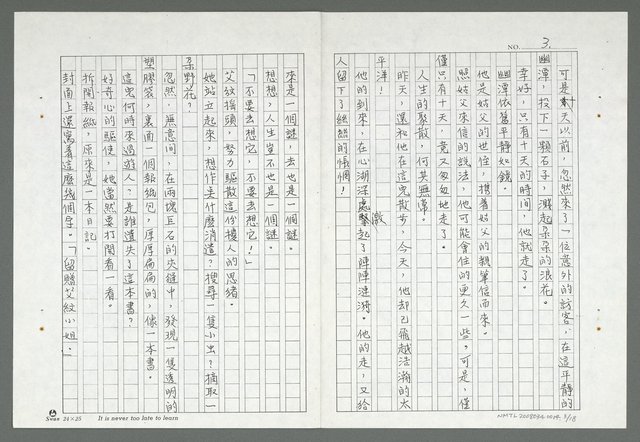 NO. 3.
可是，十天以前，忽然來了一位意外的訪客，在這平靜的
幽潭，投下一顆石子，濺起朵朵的浪花。
幸好，只有十天的時間，他就走了。
幽潭依舊平靜如鏡。
他是姑父的世侄，攜著姑父的親筆信而來。
照姑父來信的說法，他可能會住的更久一些。可是，僅
僅只有十天，竟又匆匆地走了。
人生的聚散，何其無常。
昨天，還和他在這兒散步，今天，他却已飛越浩瀚的太
平洋！
他的到來，在心湖深處激起了陣陣漣漪。他的走，又給
人留下了絲絲的悵惘！
來是一個謎，去也是一個謎。
想想，人生豈不也是一個謎。
「不要去想它，不要去想它！」
艾紋搖頭，努力驅散這份擾人的思緒。
她站立起來，想作點什麼消遣？搜尋一隻小虫？摘取一
朵野花？
忽然，無意間，在兩塊巨石的夾縫中，發現一隻透明的
塑膠袋，裏面一個報紙包，厚厚扁扁的，像一本書。
這兒何時來過遊人？是誰遺失了這本書？
好奇心的驅使，她當然要打開看一看。
拆開報紙，原來是一本日記。
封面上還寫着這麼幾個字。「留贈艾紋小姐．
Swan 24×25 It is never too late to learn
NMTL20080390014 3/18